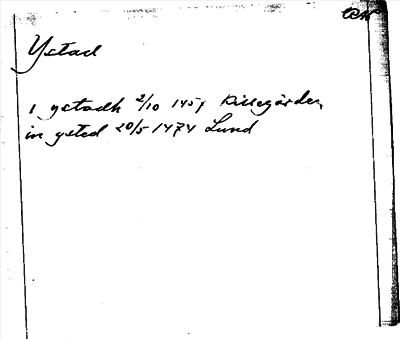 Ystad
i ystadh 2/10 1457 Lillegården
in ysted 20/5 1474 Lund